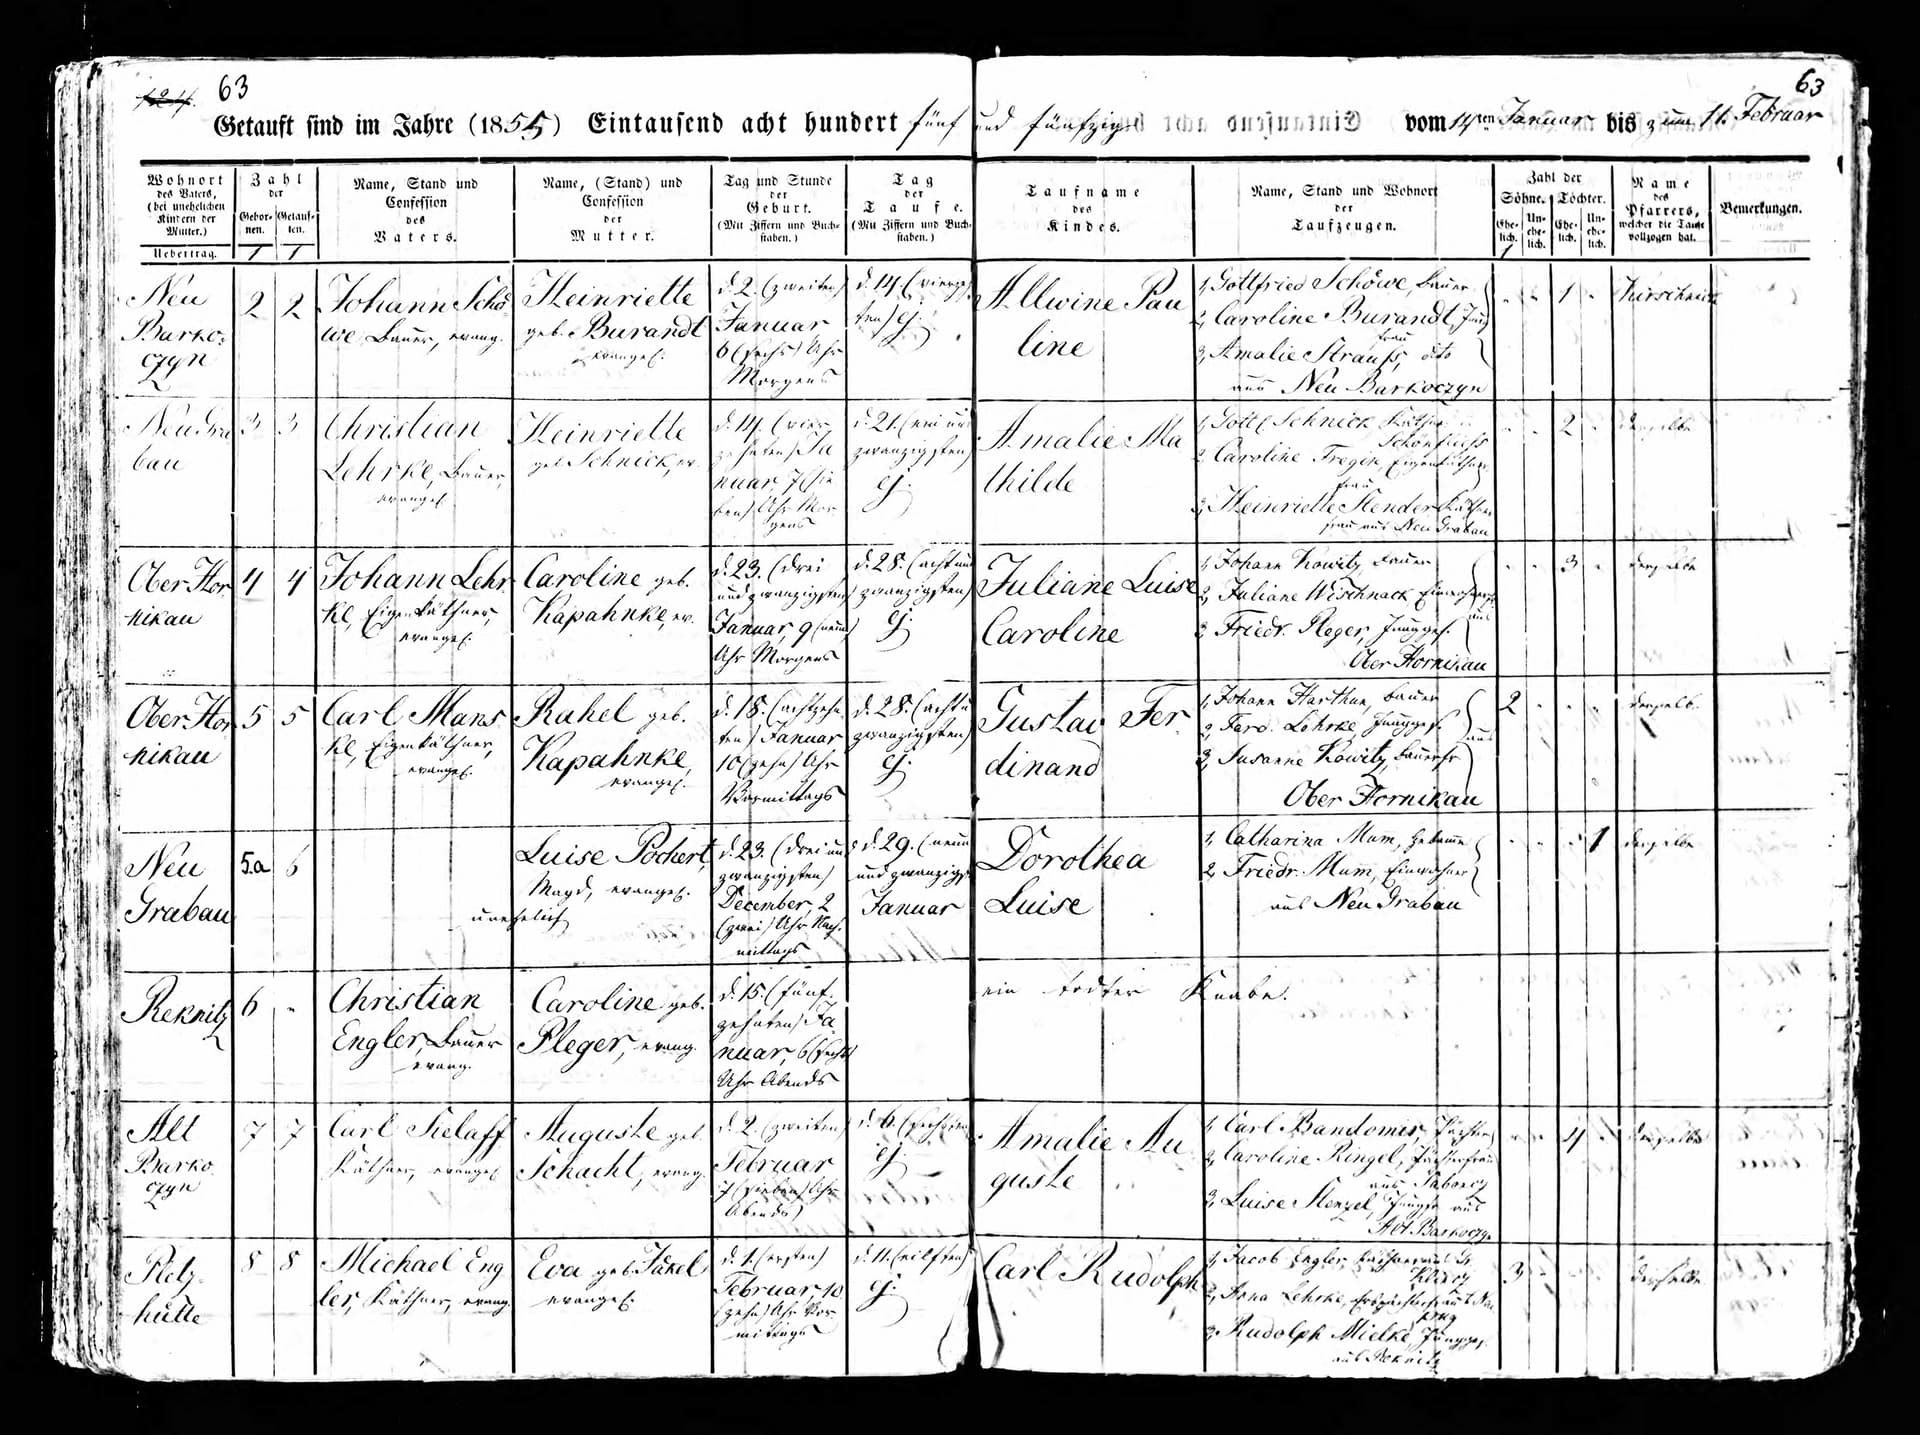 124.
63
63
Getauft sind im Jahre (1855) Eintausend acht hundert fünf und fünfzig vom 14ten Januar bis zum 11. Februar
Wohnort des Vaters, (bei unehelichen Kindern der Mutter.)
Zahl der
Gebornen.
Getauften.
Name, Stand und Confession des Vaters.
Name, (Stand) und Confession der Mutter.
Tag und Stunde der Geburt. (Mit Ziffern und Buchstaben.)
Tag der Taufe. (Mit Ziffern und Buchstaben.)
Taufname des Kindes.
Name, Stand und Wohnort der Taufzeugen.
Zahl der
Söhne. Töchter.
Ehelich. Unehelich. Ehelich. Unehelich.
Name des Pfarrers, welcher die Taufe vollzogen hat.
Bemerkungen.
Uebertrag. 1 1 1
Neu Barkoczyn
2 2
Johann Schöwe, Bauer, evang.
Heinriette geb. Burandt evangel.
d. 2. (zweiten) Januar 6 (sechs) Uhr Morgens
d. 14. (vierzehnten) ej.
Allwine Pauline
1, Gottfried Schöwe, Bauer
2, Caroline Burandt, Jungfrau
3, Amalie Strauss, dito
aus Neu Barkoczyn
1
Neu Grabau
3 3
Christian Lehrke, Bauer, evangel.
Heinriette geb. Schnick, ev.
d. 14. (vierzehnten) Januar, 7 (sieben) Uhr Morgens
d. 21. (ein und zwanzigsten) ej.
Amalie Mathilde
1, Gottl. Schnick, Käthner Schönfliess
2, Caroline Tregin, Eigenkäthnerfrau
3, Heinriette Stender Käthnerfrau aus Neu Grabau
2
derselbe
Ober Hornikau
4 4
Johann Lehrke, Eigenkäthner, evangel.
Caroline geb. Kapahnke, ev.
d. 23. (drei und zwanzigsten) Januar, 9 (neun) Uhr Morgens
d. 28. (acht und zwanzigsten) ej.
Juliane Luise Caroline
1, Johann Kowitz, Bauer
2, Juliane Wischnack
3, Friedr. Pleger, Junggef. aus
Ober Hornikau
3
derselbe
Ober Hornikau
5 5
Carl Manske, Eigenkäthner, evangel.
Rahel geb. Kapahnke, evangel.
d. 18. (achtzehnten) Januar 10 (zehn) Uhr Vormittags
d. 28. (acht u zwanzigsten) ej.
Gustav Ferdinand
1, Johann Harthun, Bauer
2, Ferd. Lehrke, Junggef.
3, Susanne Kowitz, Bauerfr aus
Ober Hornikau
2
derselb.
Neu Grabau
5.a 6
Luise Pochert, Magd, evangel.
unehelich
d. 23. (drei und zwanzigsten) December, 2 (zwei) Uhr Nachmittags
d. 29. (neun und zwanzigst Januar
Dorothea Luise
1, Catharina Mum, Hebamme
2, Friedr. Mum, Einwohner
aus Neu Grabau
1
derselbe
Reknitz
6 -
Christian Engler, Bauer evang.
Caroline geb. Pleger, evang.
d. 15. (fünfzehnten) Januar, 6 (sechs) Uhr Abends
ein todter Knabe.
Alt Barkoczyn
7 7
Carl Sielaff Käthner, evangel
Auguste geb. Schacht, evang.
d. 2. (zweiten) Februar 7 (sieben) Uhr Abends
d. 6. (sechsten) ej.
Amalie Auguste
1, Carl Bandomir, Pächter
2, Caroline Ringel, Pächterfrau
3, Luise Stenzel, Jungfr aus
Alt Barkoczyn
4
derselbe
Pletzhütte
8 8
Michael Engler, Käthner, evang.
Eva geb. Jakel evangel.
d. 1. (ersten) Februar, 10 (zehn) Uhr Vormittags
d. 11. (eilften) ej.
Carl Rudolph
1, Jacob Engler, Käthner aus
2, Anna Lehrke,
3, Rudolph Mielke, Junggef.
aus Reknitz
3
derselbe